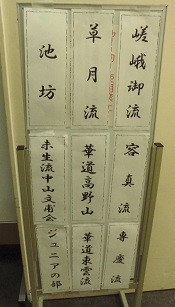 嵯峨御流
草月流
池坊
容真流
華道高野山
未生流中山文甫会
専慶流
華道東雲流
ジュニアの部